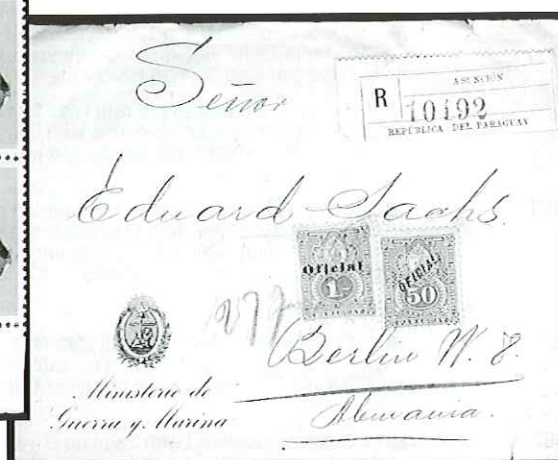 Señor
ASUNCIÓN
R 10492
REPÚBLICA DEL PARAGUAY
Eduard Sachs.
Oficial
1
OFICIAL
50
Berlin W. 8.
Ministerio de
Guerra y Marina
Alemania.